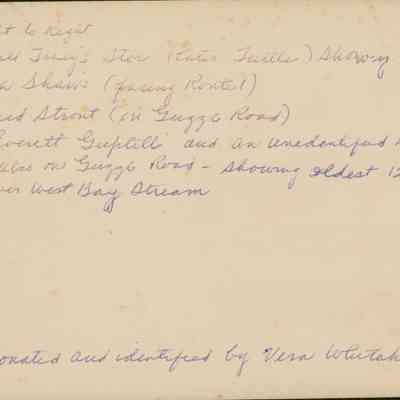 ht to Right
Tracy's Stor (Later Tuells) Showing
a Shaws (facing Route 1)
Strout (on Guzzle Road)
Everett Guptill and an unedentified
also on Guzzle Road - showing oldest 12
ver West Bay Stream
onated and identified by Vera Whitak